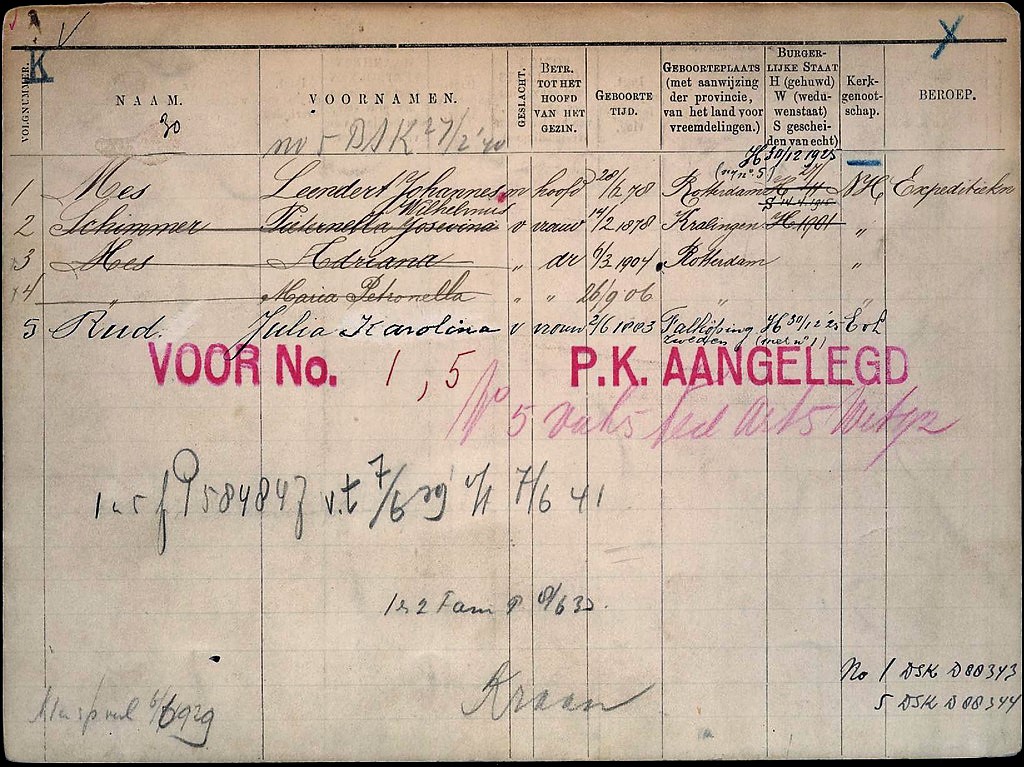 K
VOLGNUMMER. NAAM. VOORNAMEN. GESLACHT. BETR. TOT HET HOOFD VAN HET GEZIN. GEBOORTE TIJD. GEBOORTEPLAATS (met aanwijzing der provincie, van het land voor vreemdelingen.) BURGERLIJKE STAAT H (gehuwd) W (weduwenstaat) S gescheiden van echt) Kerkgenootschap. BEROEP.
30
no 5 DSK 27/2 '40
H 30/12 1925
1 Mes Leendert Johannes m hoofd 20/2 78 Rotterdam NH
Wilhelmus
2 Schimmer Petronella Josevina v vrouw 14/2 1878 Kralingen H 1901 "
3 Mes Adriana " dr 6/3 1904 Rotterdam "
4 " Maria Petronella " " 26/9 06 " "
5 Rud. Julia Karolina v vrouw 2/6 1883 Falköping H 30/12 '25
Zweden (met no 1)
VOOR No. 1, 5 P.K. AANGELEGD
No 5
1 u 5 f P584847 v.t 7/6 29 7/6 41
1 2 Fam
Kraan
No 1 DSK D88343
5 DSK D88344
6/6 929